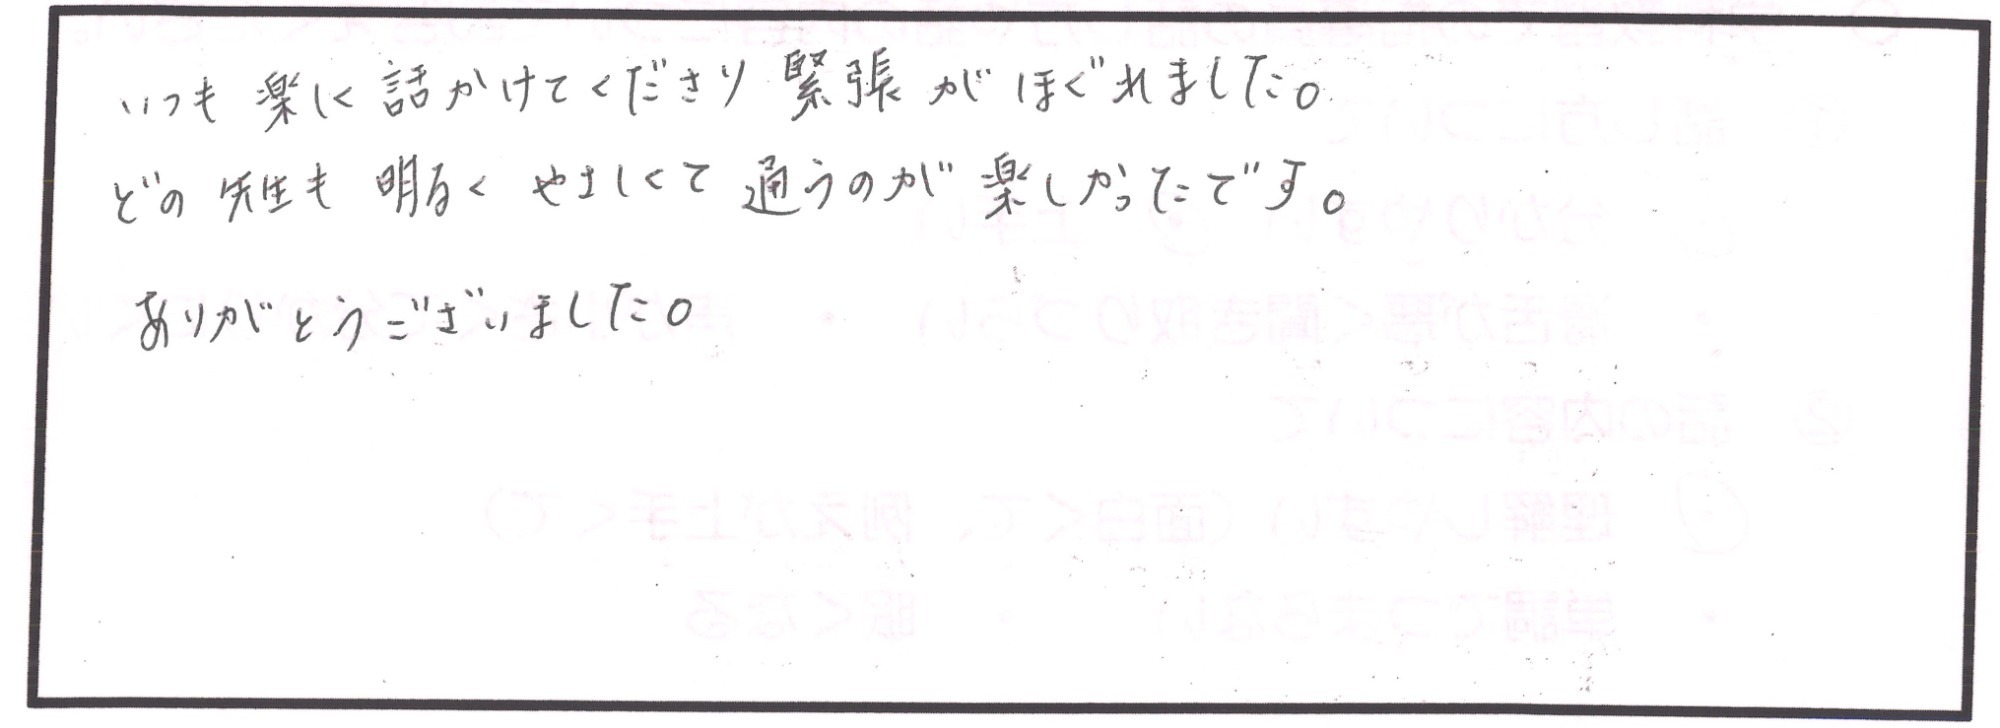 いつも楽しく話かけてくださり緊張がほぐれました。
どの先生も明るくやさしくて通うのが楽しかったです。
ありがとうございました。